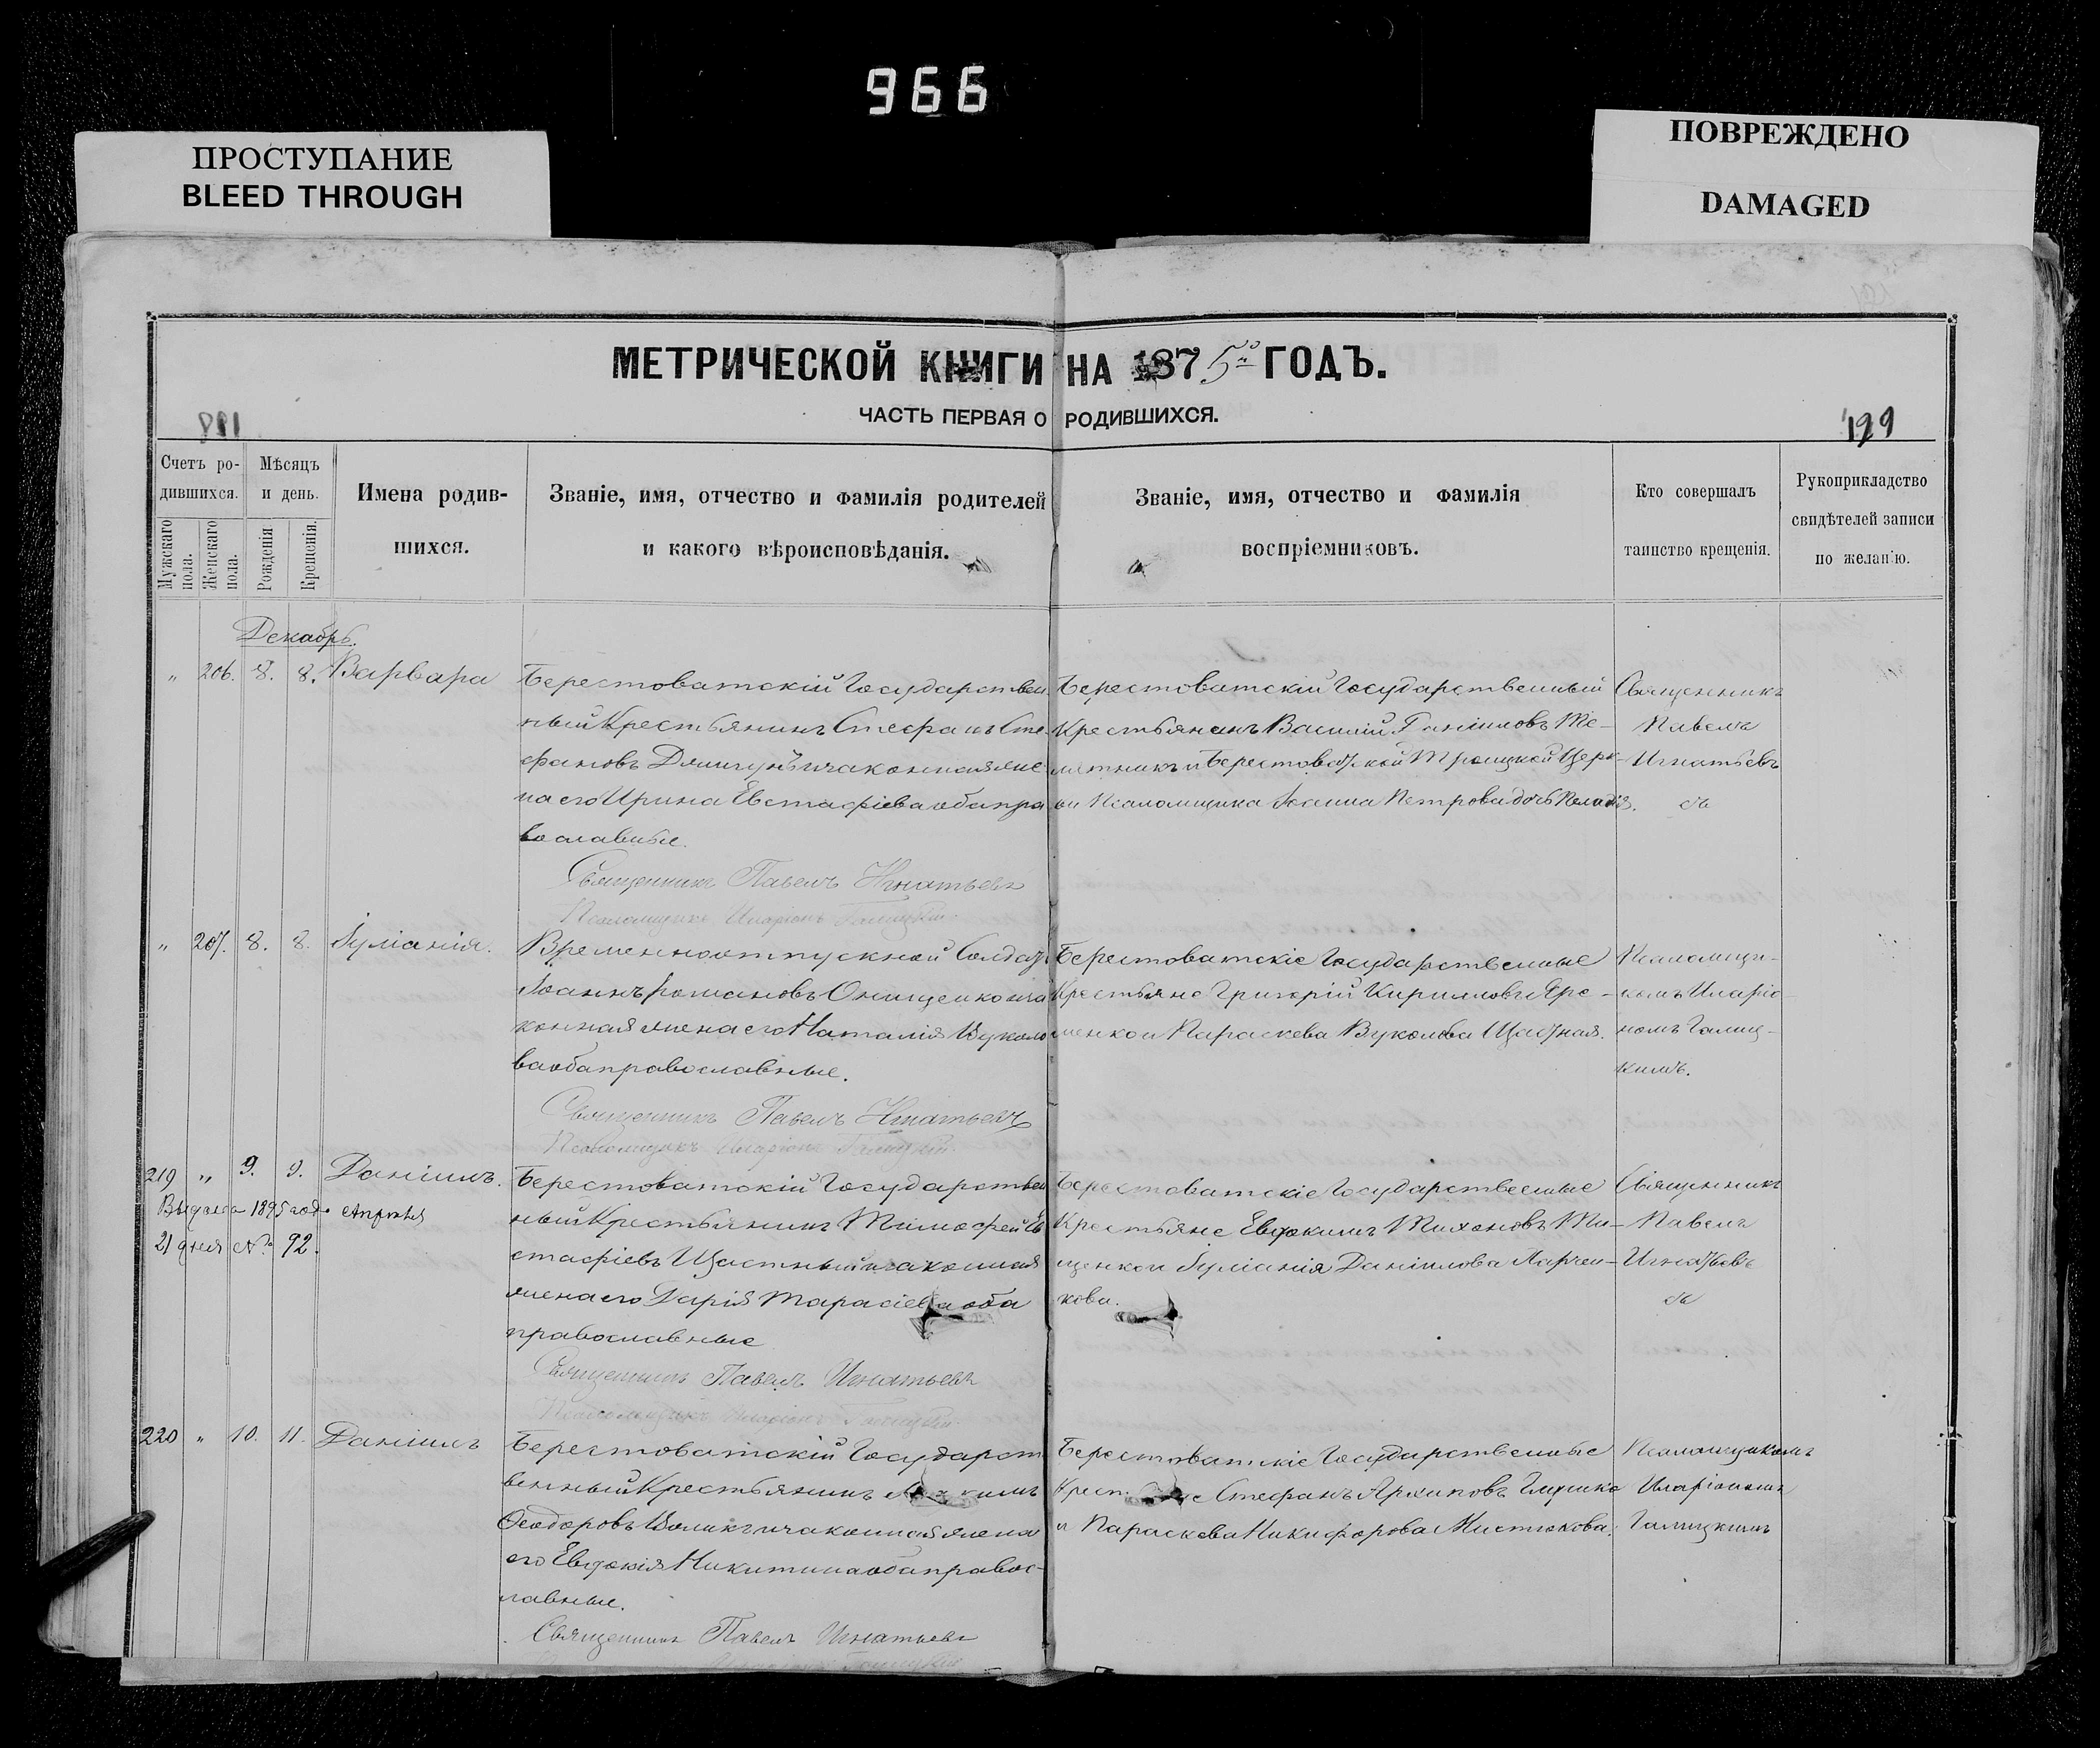 966
ПРОСТУПАНИЕ
BLEED THROUGH
ПОВРЕЖДЕНО
DAMAGED
МЕТРИЧЕСКОЙ КНИГИ НА 1875го ГОДЪ.
ЧАСТЬ ПЕРВАЯ О РОДИВШИХСЯ.
199
Счетъ ро-
дившихся.
Мужскаго пола.
Женскаго пола.
Мѣсяцъ
и день.
Рожденія
Крещенія.
Имена родив-
шихся.
Званіе, имя, отчество и фамилія родителей
и какого вѣроисповѣданія.
Званіе, имя, отчество и фамилія
воспріемниковъ.
Кто совершалъ
таинство крещенія.
Рукоприкладство
свидѣтелей записи
по желанію.
Декабрь.
" 206. 8. 8. Варвара
Берестоватскій Государствен
ный Крестьянинъ Стефанъ Сте-
фановъ и законная же
на его Ирина Евстафіева оба пра
вославные.
Священникъ Павелъ Игнатьевъ
Псаломщикъ Иларіонъ Галицкій
Берестоватскій Государственный
Крестьянинъ Василій Даніиловъ Ме-
лятникъ и Берестоватской Троицкой Церк-
ви Псаломщика Іоанна Петрова дочь
Священникъ
Павелъ
Игнатьевъ
" 207. 8. 8. Іуліанія.
Временноотпускной Солдатъ
Іоаннъ Романовъ Онищенко и за
конная жена его Наталія Вуколо
ва оба православные.
Священникъ Павелъ Игнатьевъ
Псаломщикъ Иларіонъ Галицкій
Берестоватскіе Государственные
Крестьяне Григорій Кирилловъ Яре-
менко и Параскева Вуколова Щастная.
Псаломщи-
комъ Иларіо
номъ Галиц-
кимъ.
219 " 9. 9. Даніилъ.
Выдана 1895 года Апрѣля
21 дня № 92.
Берестоватскій Государствен
ный Крестьянинъ Тимофей Ев
стафіевъ Щастный и законная
жена его Дарія Тарасіева оба
православные
Священникъ Павелъ Игнатьевъ
Псаломщикъ Иларіонъ Галицкій
Берестоватскіе Государственные
Крестьяне Евдокимъ Тихоновъ Ти-
щенко и Іуліанія Даніилова Харчен-
кова.
Священникъ
Павелъ
Игнатьевъ
220 " 10. 11. Даніилъ
Берестоватскій Государст
венный Крестьянинъ
Ѳеодоровъ Воликъ и законная жена
его Евдокія Никитина оба правос-
лавные.
Священникъ Павелъ Игнатьевъ
Берестоватскіе Государственные
Крест. Стефанъ Архиповъ Глушко
и Параскева Никифорова Мистюкова.
Псаломщикомъ
Иларіономъ
Галицкимъ